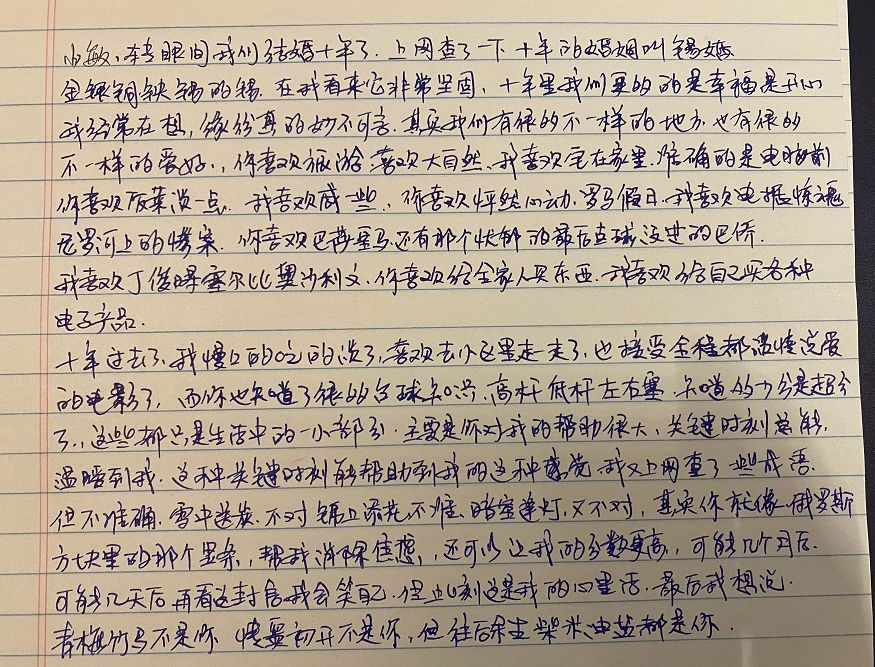 小敏,转眼间我们结婚十年了.上网查了一下十年的婚姻叫锡婚
金银铜铁锡的锡.在我看来它非常坚固,十年里我们要的的是幸福是开心
我经常在想,缘份真的妙不可言.其实我们有很多不一样的地方也有很多
不一样的爱好.,你喜欢旅游喜欢大自然.我喜欢宅在家里.准确的是电脑前
你喜欢饭菜淡一点.我喜欢咸一些.你喜欢怦然心动.罗马假日.我喜欢电锯惊魂
尼罗河上的惨案.你喜欢巴萨皇马还有那个忧郁的最后点球没进的巴乔.
我喜欢丁俊晖塞尔比奥沙利文.你喜欢给全家人买东西.我喜欢给自己买各种
电子产品.
十年过去了.我慢慢的吃的淡了,喜欢去小区里走一走了,也接受全程都温情说爱
的电影了,而你也知道了很多台球知识.高杆低杆左右塞.知道多少分是超分
了.,这些都只是生活中的一小部分.主要是你对我的帮助很大、关键时刻总能,
温暖到我.这种关键时刻能帮助到我的这种感觉我又上网查了一些成语.
但不准确.雪中送炭.不对锦上添花不准.暗室逢灯,又不对,其实你就像俄罗斯
方块里的那个竖条,帮我消除焦虑,,还可以让我的分数更高,可能几个月后.
可能几天后再看这封信我会笑自己.但此刻这是我的心里话.最后我想说.
青梅竹马不是你 情窦初开不是你,但往后余生柴米油盐都是你.